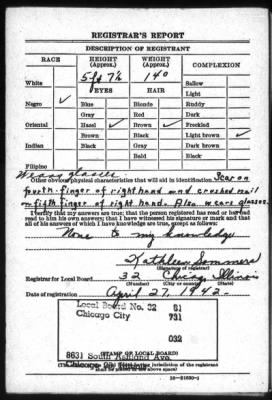 REGISTRAR'S REPORT
DESCRIPTION OF REGISTRANT
RACE
HEIGHT
(Approx.)
WEIGHT
(Approx.)
COMPLEXION
5 ft 7½
140
White
EYES
HAIR
Sallow
Light
Negro ✓
Blue
Blonde
Ruddy
Gray
Red
Dark
Oriental
Hazel ✓
Brown ✓
Freckled
Brown
Black
Light brown ✓
Indian
Black
Gray
Dark brown
Bald
Black
Filipino
Wears glasses
Other obvious physical characteristics that will aid in identification Scar on
fourth finger of right hand and crushed nail
on fifth finger of right hand. Also wears glasses
I certify that my answers are true; that the person registered has read or has had
read to him his own answers; that I have witnessed his signature or mark and that
all of his answers of which I have knowledge are true, except as follows:
None to my knowledge
Kathleen Sommers
(Signature of registrar)
Registrar for Local Board 32 Chicago Illinois
(Number) (City or county) (State)
Date of registration April 27, 1942
Local Board No. 32 81
Chicago City 731
032
8631 South Ashland Ave.
(STAMP OF LOCAL BOARD)
Chicago,
jurisdiction of the registrant
shall be placed in the above space)
16—21630-1